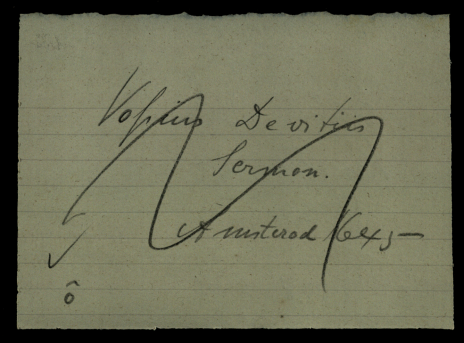 Vossius De vitiis
Sermon.
Amsterod 1645
ô